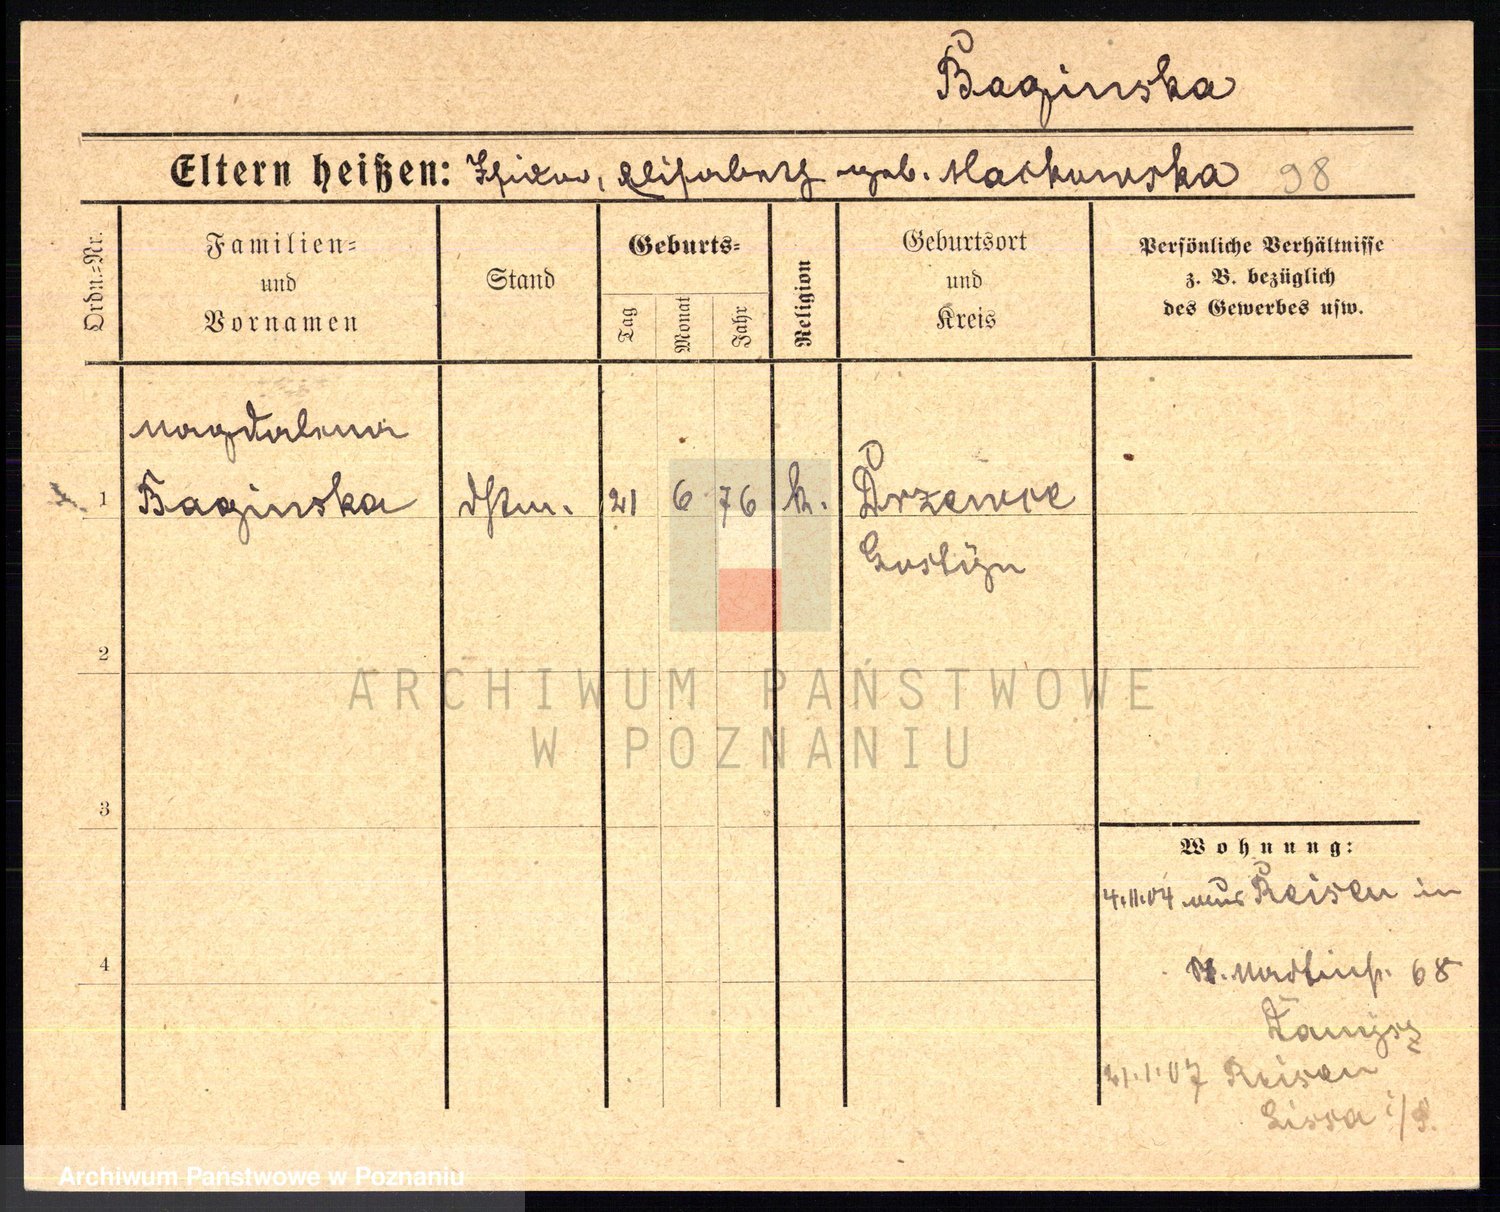 Baginska
Eltern heißen: Isidor, Elisabeth geb. Mackowska 98
Ordn.=Nr.
Familien=
und
Vornamen
Stand
Geburts=
Tag
Monat
Jahr
Religion
Geburtsort
und
Kreis
Persönliche Verhältnisse
z. B. bezüglich
des Gewerbes usw.
Magdalena
1 Baginska dstm. 21 6 76 k. Drzewce
Gostÿn
2
ARCHIWUM PAŃSTWOWE
W POZNANIU
3
Wohnung:
4.11.04 aus Reisen in
4 St. Martinstr. 68
21.1.07 Reisen
Lissa i/P.
Archiwum Państwowe w Poznaniu